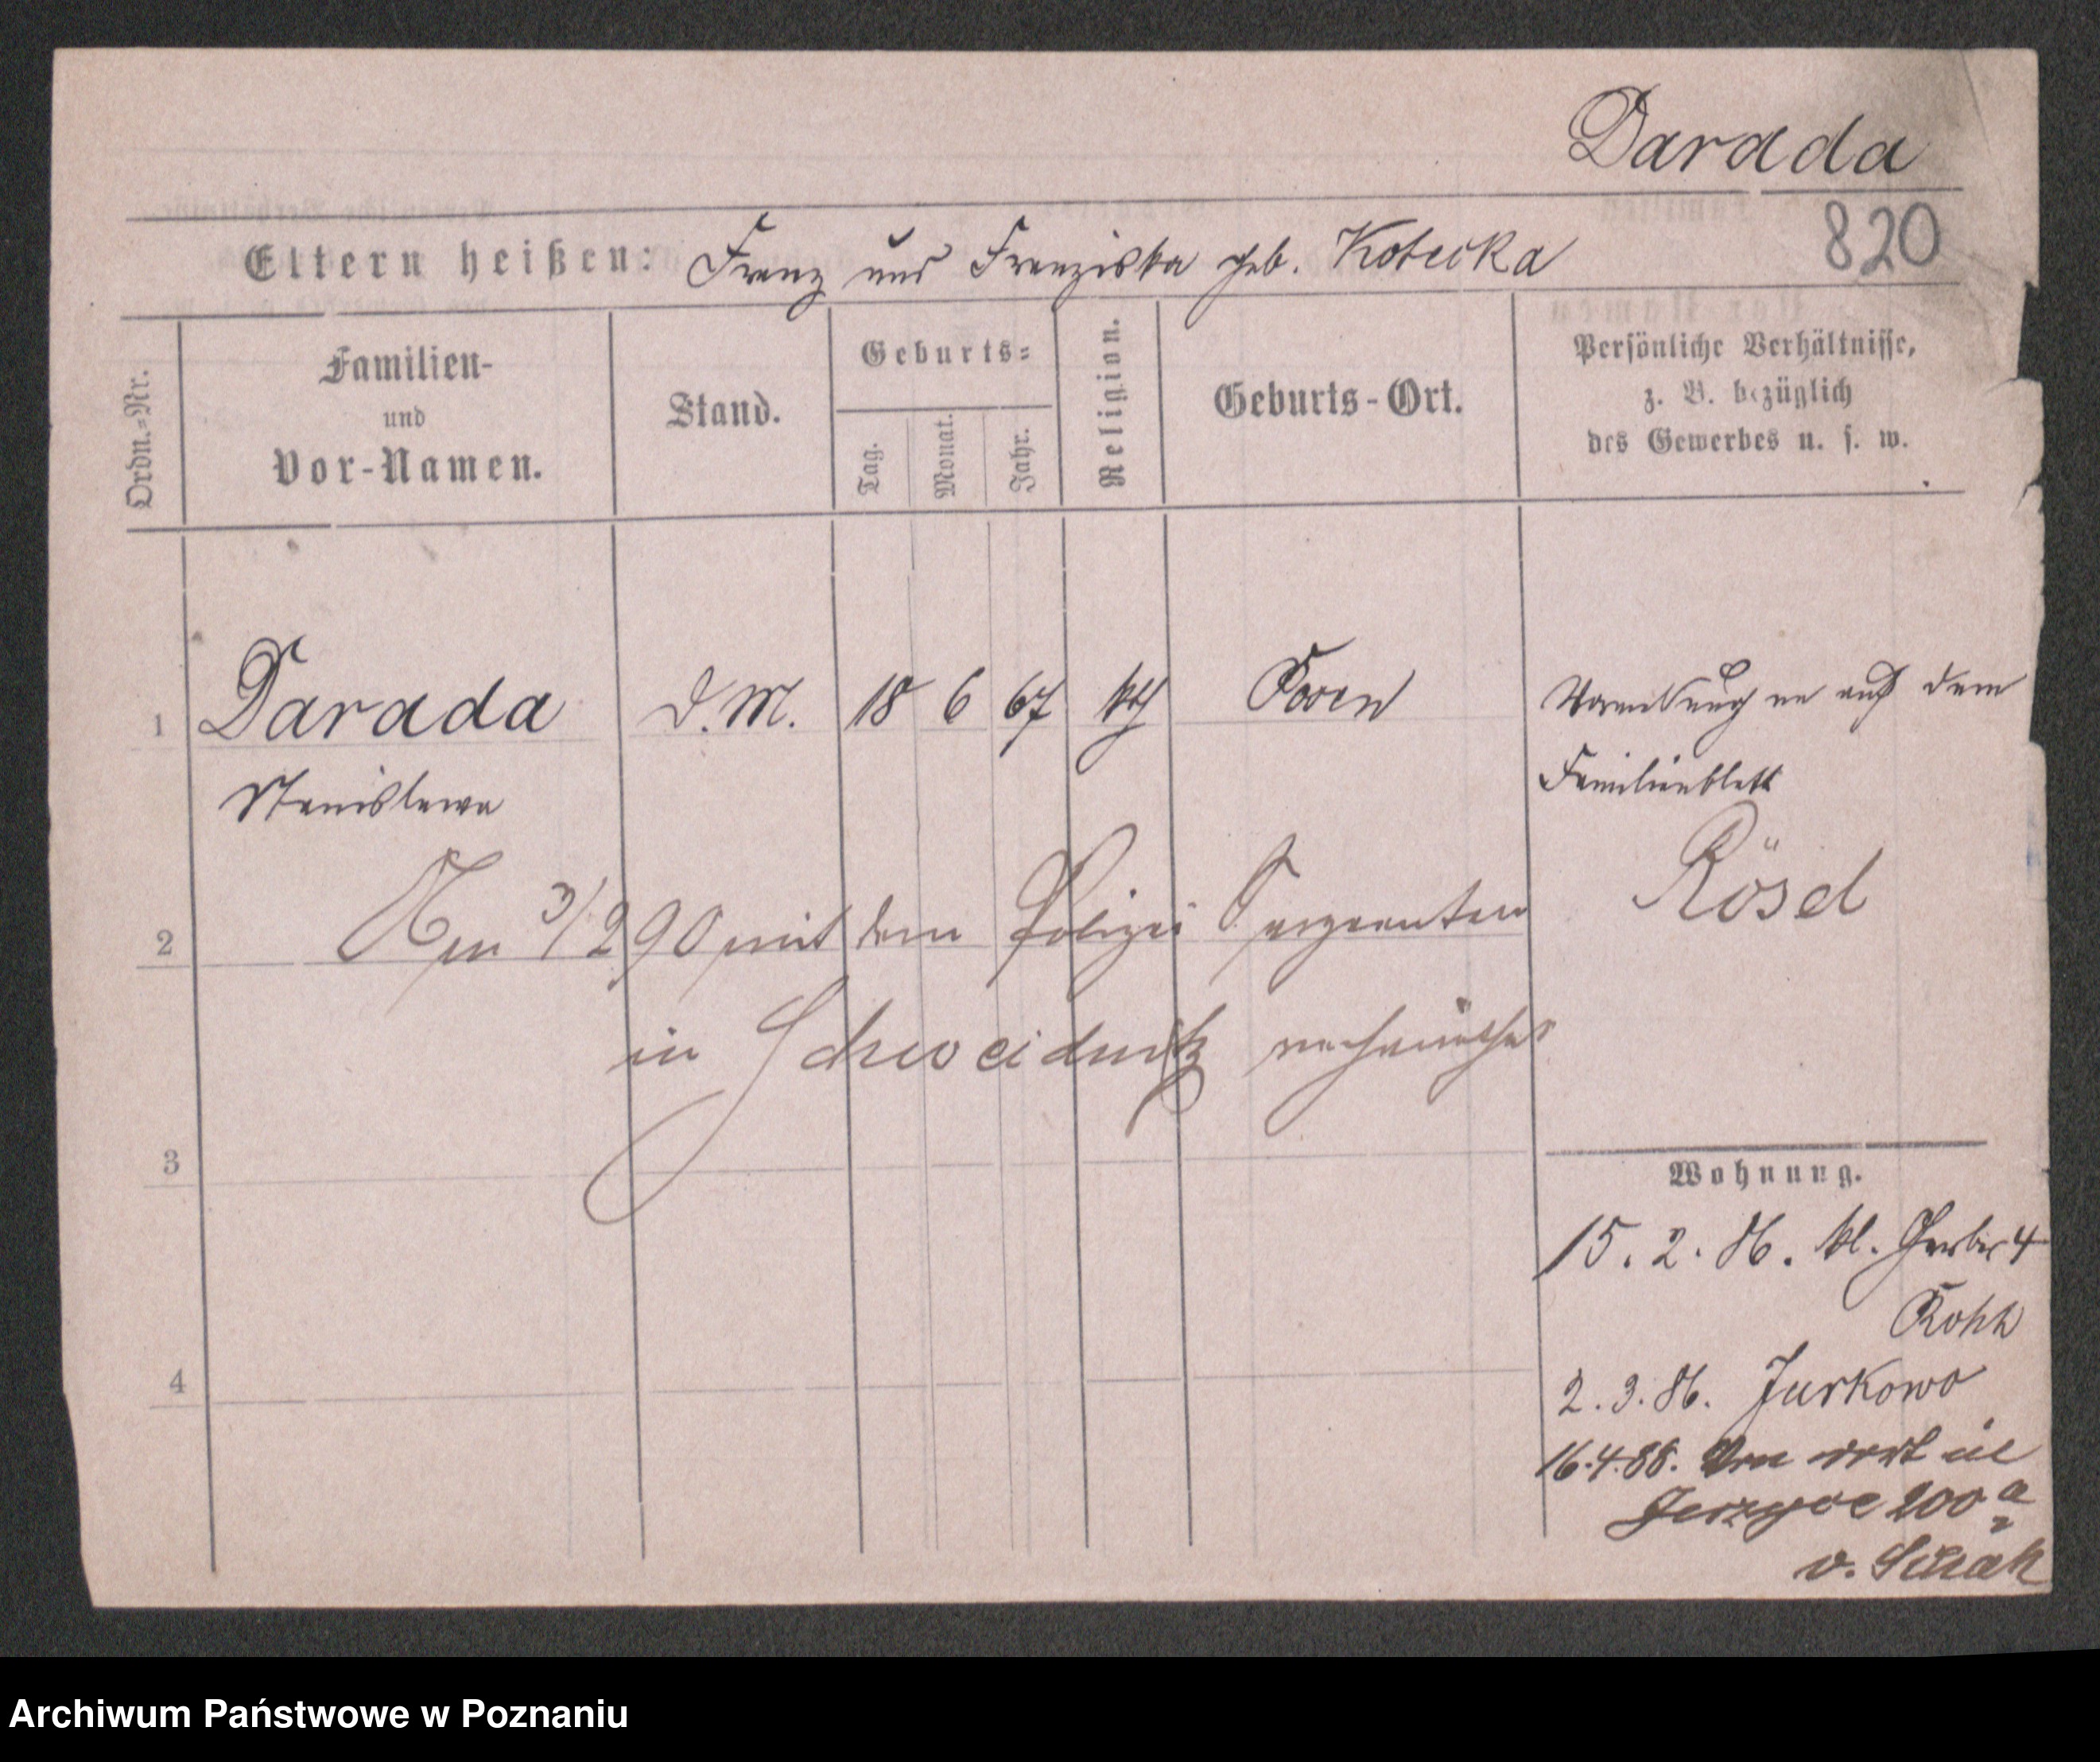 Darada
820
Eltern heißen: Franz und Franziska geb. Kotecka
Ordn.-Nr.
Familien-
und
Vor-Namen.
Stand.
Geburts-
Tag.
Monat.
Jahr.
Religion.
Geburts-Ort.
Persönliche Verhältnisse,
z. B. bezüglich
des Gewerbes u. s. w.
1 Darada D.M. 18 6 67 kth Posen auf dem
Stanislawa Familienblatt
2 Am 3/2 90 mit dem Polizei Sergeanten Rösel
in Schweidnitz verheirathet
3
4
Wohnung.
15. 2. 86. kl. Gerber 4
2. 3. 86. Jurkowo
16.4.88. in
Jerzyce 200 a
v.
Archiwum Państwowe w Poznaniu